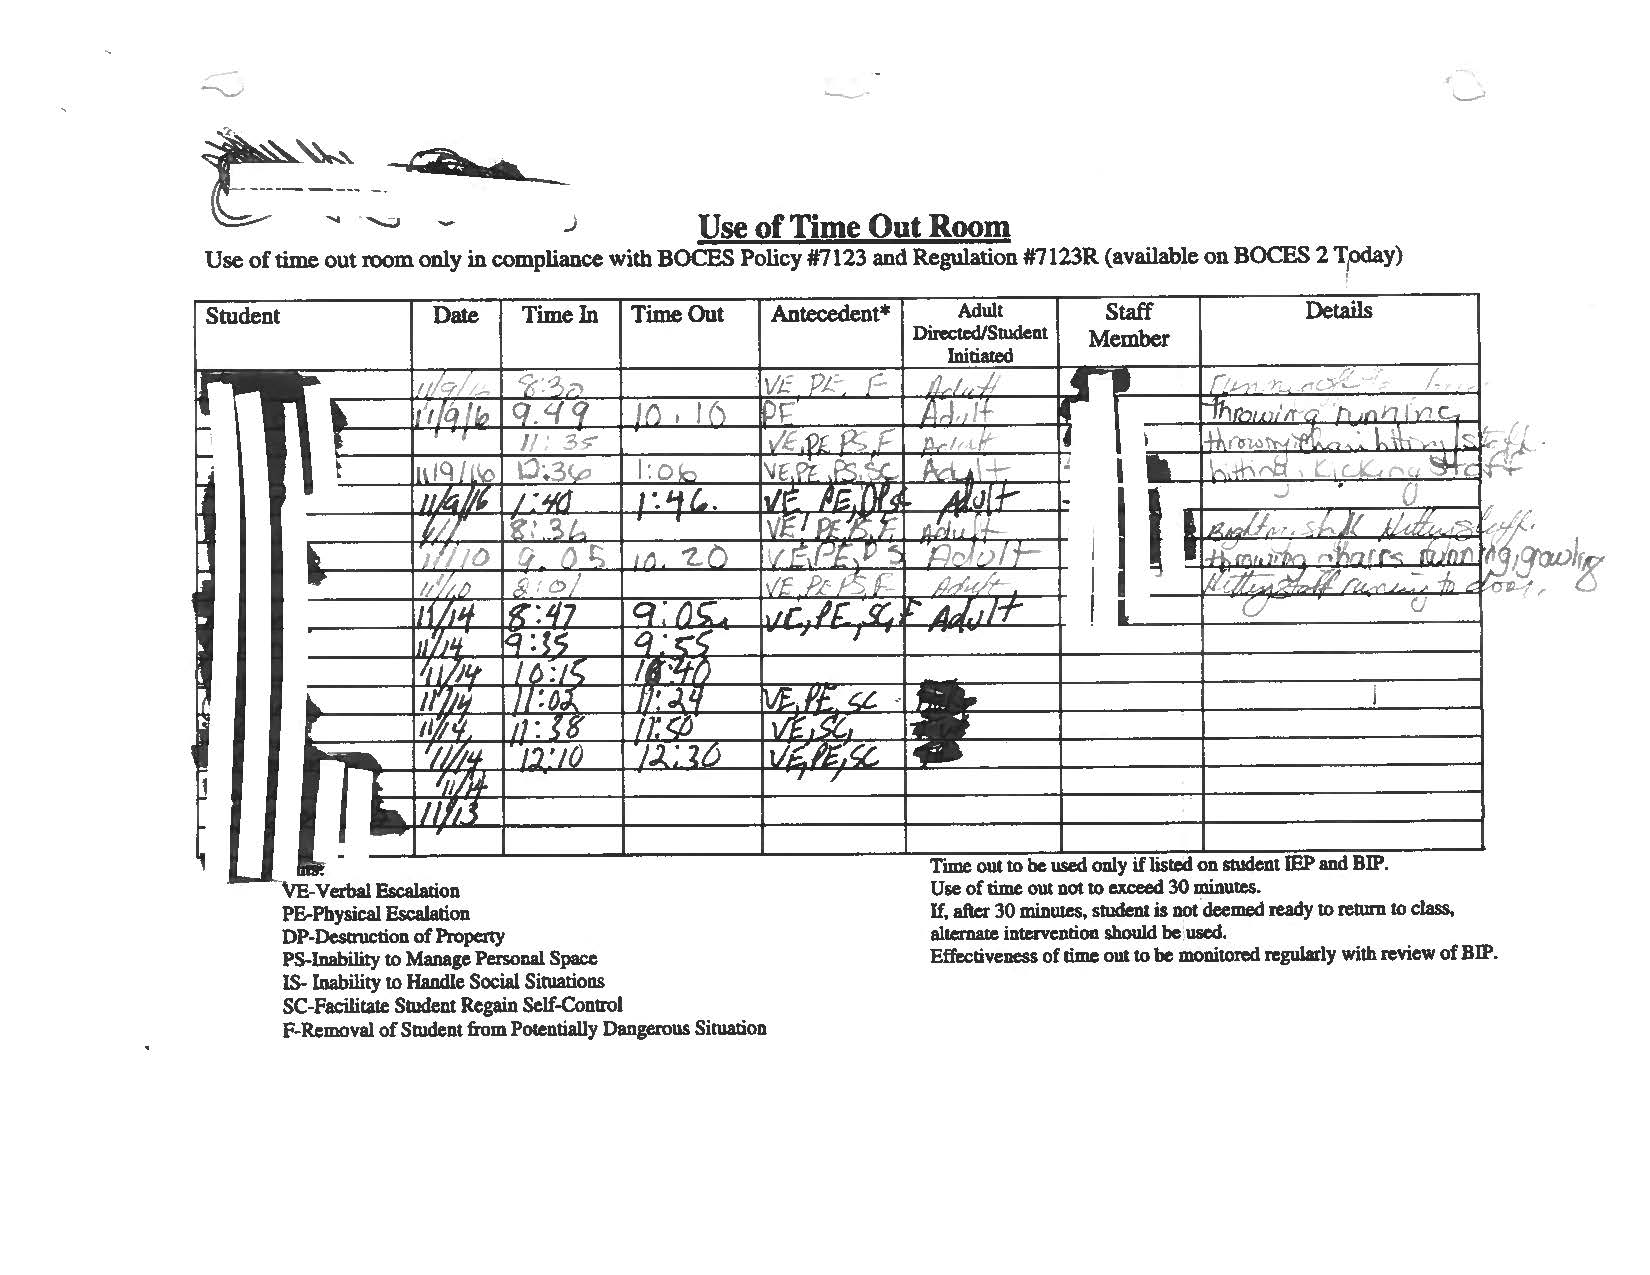 Use of Time Out Room
Use of time out room only in compliance with BOCES Policy #7123 and Regulation #7123R (available on BOCES 2 Today)
Student Date Time In Time Out Antecedent* Adult Directed/Student Initiated Staff Member Details
11/9/16 8:30 VE, PE, F Adult
11/9/16 9.49 10.10 PE Adult Throwing running
11:35 VE, PE PS, F Adult
11/9/16 12:36 1:06 VE, PE, PS, SC Adult hitting, kicking staff
11/9/16 1:40 1:46. VE PE, Adult
8:36 VE, PE Adult
9.05 10.20 VE, PE, Adult throwing chairs running, growling
8:01 VE, PE PS, F Adult Hitting staff running to door.
11/14 8:47 9:05 VE, PE, SC, F Adult
11/14 9:35 9:55
11/14 10:15 10:40
11/14 11:02 11:24 VE, PE, SC
11/14 11:38 11:50 VE, SC,
11/14 12:10 12:30 VE, PE, SC
11/14
11/13
VE-Verbal Escalation
PE-Physical Escalation
DP-Destruction of Property
PS-Inability to Manage Personal Space
IS- Inability to Handle Social Situations
SC-Facilitate Student Regain Self-Control
F-Removal of Student from Potentially Dangerous Situation
Time out to be used only if listed on student IEP and BIP.
Use of time out not to exceed 30 minutes.
If, after 30 minutes, student is not deemed ready to return to class,
alternate intervention should be used.
Effectiveness of time out to be monitored regularly with review of BIP.